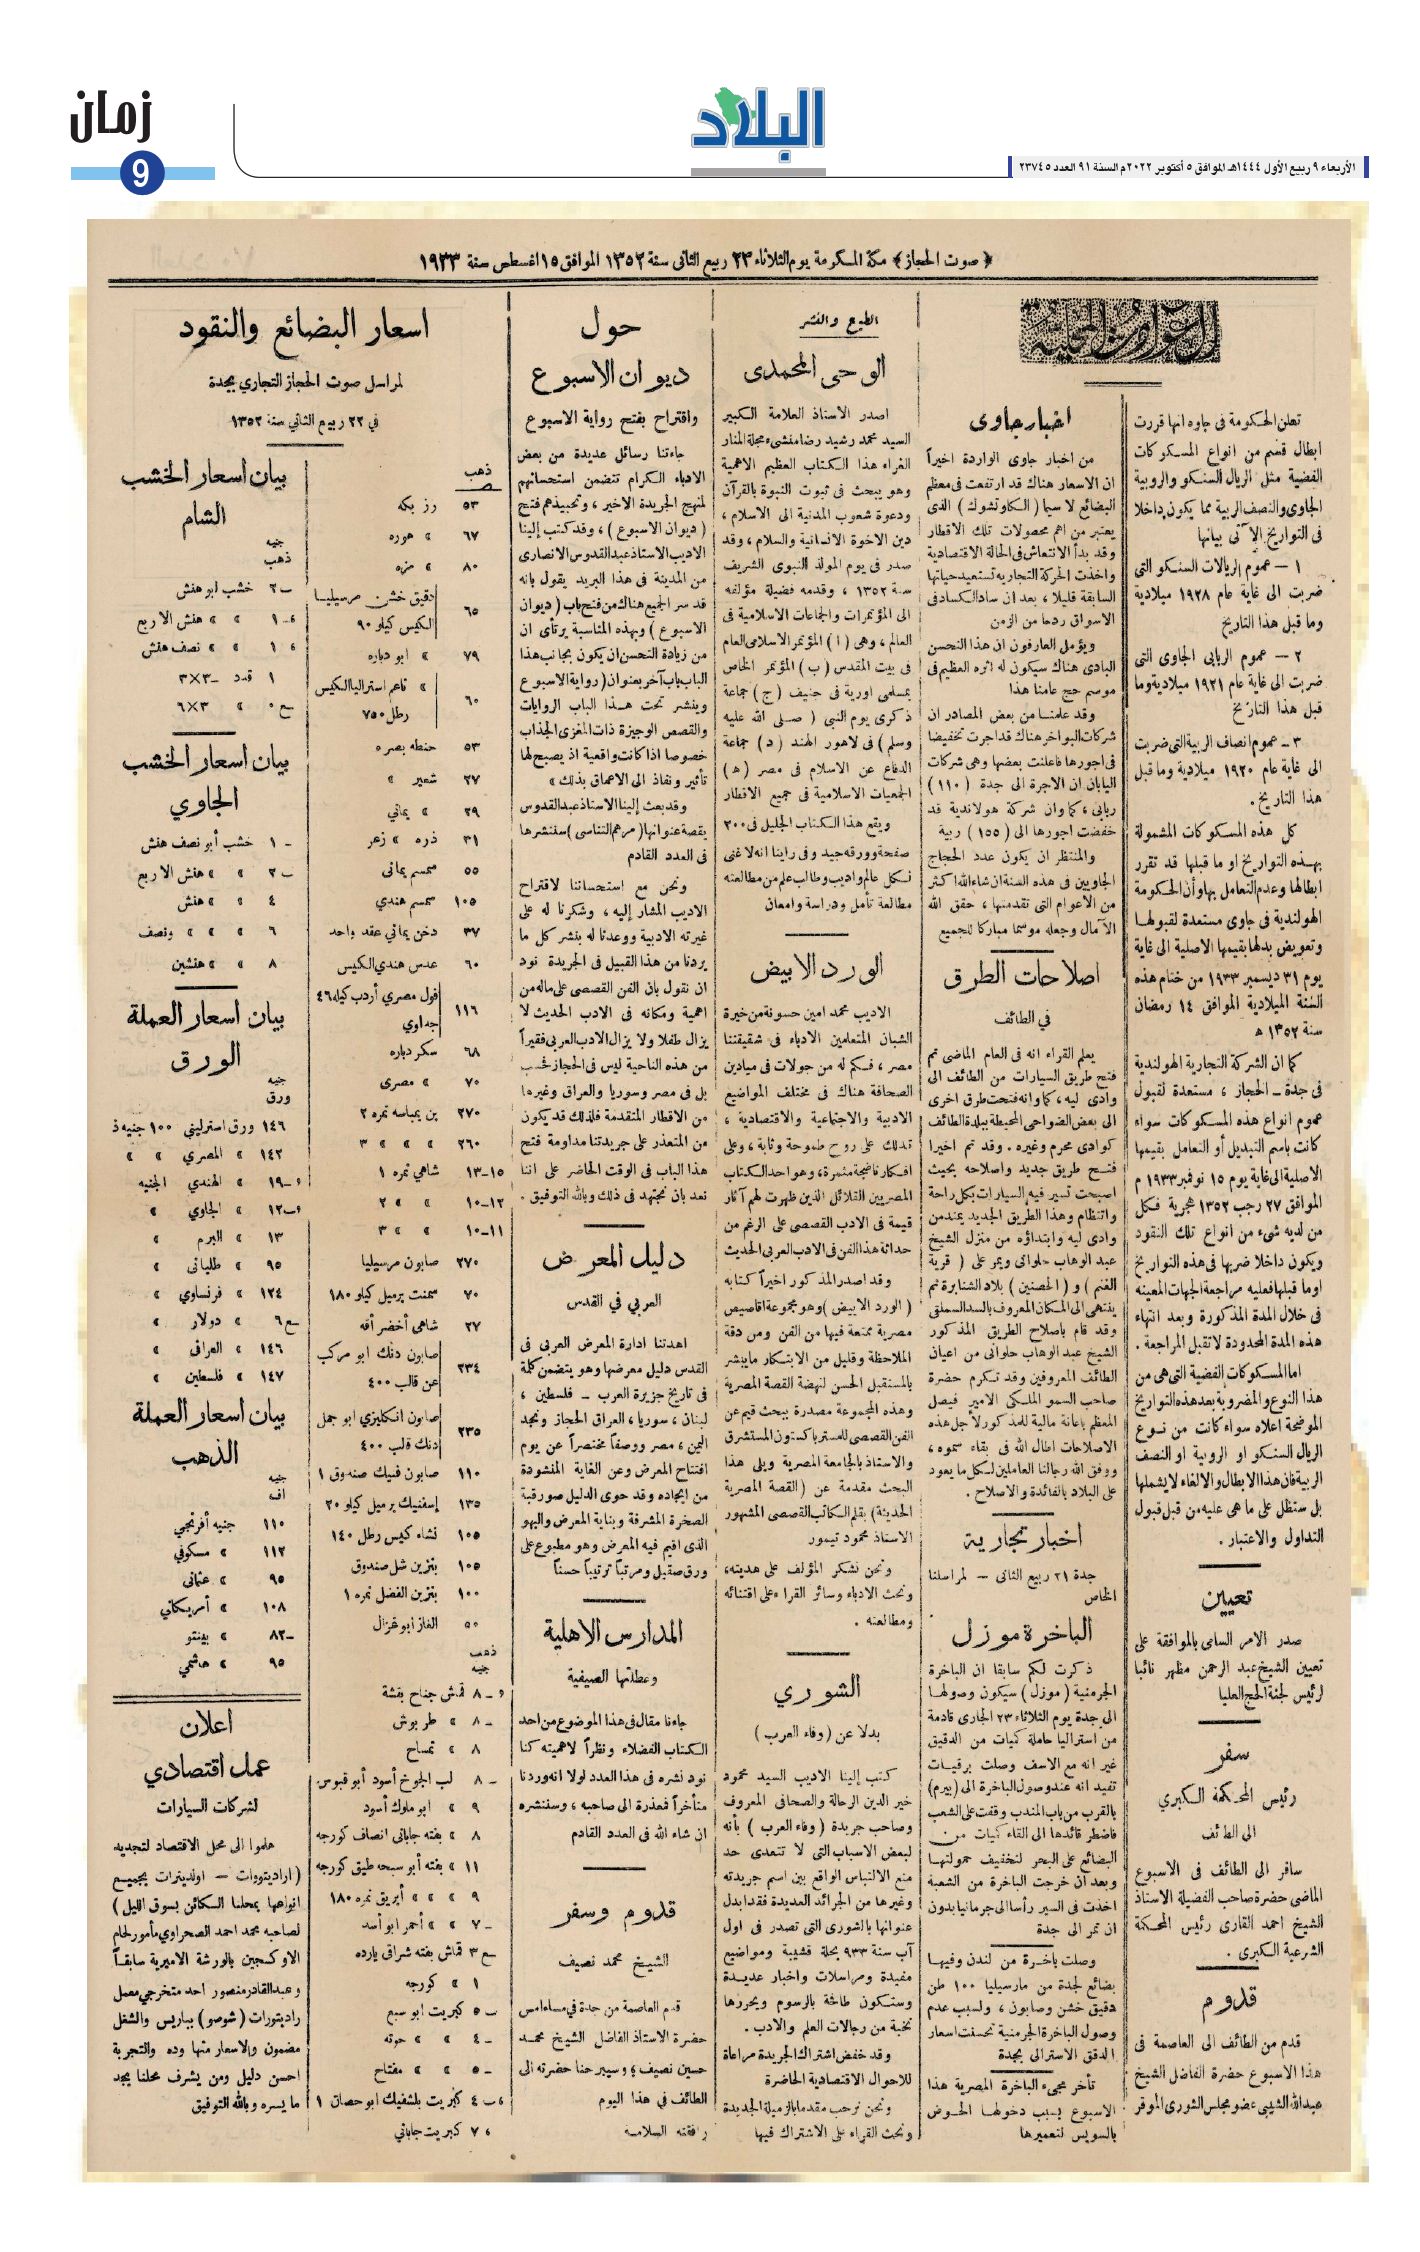 الأربعاء ٩ ربيع الأول ١٤٤٤هـ الموافق ٥ أكتوبر ٢٠٢٢م السنة ٩١ العدد ٢٣٧٤٥
البلاد
زمان
9
﴿ صوت الحجاز ﴾ مكة المكرمة يوم الثلاثاء ٢٣ ربيع الثانى سنة ١٣٥٢ الموافق ١٥ اغسطس سنة ١٩٣٣
الحوادث المحلية
تعلن الحكومة فى جاوه انها قررت
ابطال قسم من انواع المسكوكات
الفضية مثل الريال السنكو والروبية
الجاوى والنصف الربية مما يكون داخلا
فى التواريخ الآتى بيانها
١ — عموم الريالات السنكو التى
ضربت الى غاية عام ١٩٢٨ ميلادية
وما قبل هذا التاريخ
٢ — عموم الربابى الجاوى التى
ضربت الى غاية عام ١٩٢١ ميلادية وما
قبل هذا التاريخ
٣ ـ عموم انصاف الربية التى ضربت
الى غاية عام ١٩٢٠ ميلادية وما قبل
هذا التاريخ .
كل هذه المسكوكات المشمولة
بهذه التواريخ او ما قبلها قد تقرر
ابطالها وعدم التعامل بها وأن الحكومة
الهولندية فى جاوى مستعدة لقبولها
وتعويض بدلها بقيمها الاصلية الى غاية
يوم ٣١ ديسمبر ١٩٣٣ من ختام هذه
السنة الميلادية الموافق ١٤ رمضان
سنة ١٣٥٢ ه
كما ان الشركة التجارية الهولندية
فى جدة ـ الحجاز ، مستعدة لقبول
عموم انواع هذه المسكوكات سواء
كانت باسم التبديل أو التعامل بقيمها
الاصلية الى غاية يوم ١٥ نوفمبر ١٩٣٣ م
الموافق ٢٧ رجب ١٣٥٢ هجرية فكل
من لديه شىء من انواع تلك النقود
ويكون داخلا ضربها فى هذه التواريخ
اوما قبلها فعليه مراجعة الجهات المعينه
فى خلال المدة المذكورة وبعد انتهاء
هذه المدة المحدودة لا تقبل المراجعة .
اما المسكوكات الفضية التى هى من
هذا النوع والمضروبة بعد هذه التواريخ
الموضحة اعلاه سواء كانت من نوع
الريال السنكو او الروبية او النصف
الربية فان هذا الابطال والالغاء لا يشملها
بل ستظل على ما هى عليه من قبل قبول
التداول والاعتبار .
تعيين
صدر الامر السامى بالموافقة على
تعيين الشيخ عبد الرحمن مظهر نائبا
لرئيس لجنة الحج العليا
سفر
رئيس المحكمة الكبرى
الى الطائف
سافر الى الطائف فى الاسبوع
الماضى حضرة صاحب الفضيلة الاستاذ
الشيخ احمد القارى رئيس المحكمة
الشرعية الكبرى .
قدوم
قدم من الطائف الى العاصمة فى
هذا الاسبوع حضرة الفاضل الشيخ
عبد الله الشيبى عضو مجلس الشورى الموقر
اخبار جاوى
من اخبار جاوى الواردة اخيراً
ان الاسعار هناك قد ارتفعت فى معظم
البضائع لا سيما ( الكاوتشوك ) الذى
يعتبر من اهم محصولات تلك الاقطار
وقد بدأ الانتعاش فى الحالة الاقتصادية
واخذت الحركة التجاريه تستعيد حياتها
السابقة قليلا ، بعد ان ساد الكساد فى
الاسواق ردحا من الزمن
ويؤمل العارفون ان هذا التحسن
البادى هناك سيكون له اثره العظيم فى
موسم حج عامنا هذا
وقد علمنا من بعض المصادر ان
شركات البواخر هناك قد اجرت تخفيضا
فى اجورها فاعلنت بعضها وهى شركات
اليابان ان الاجرة الى جدة ( ١١٠ )
ربابى ، كما وان شركة هولاندية قد
خفضت اجورها الى ( ١٥٥ ) ربية
والمنتظر ان يكون عدد الحجاج
الجاويين فى هذه السنة ان شاء الله اكثر
من الأعوام التى تقدمتها ، حقق الله
الآمال وجعله موسما مباركا للجميع
اصلاحات الطرق
في الطائف
يعلم القراء انه فى العام الماضى تم
فتح طريق السيارات من الطائف الى
وادى ليه ، كما وانه فتحت طرق اخرى
الى بعض الضواحى المحيطة ببلدة الطائف
كوادى محرم وغيره . وقد تم اخيرا
فتح طريق جديد واصلاحه بحيث
اصبحت تسير فيه السيارات بكل راحة
وانتظام وهذا الطريق الجديد يمتد من
وادى ليه وابتداؤه من منزل الشيخ
عبد الوهاب حلوانى ويمر على ( قرية
الغنم ) و ( الحصنين ) بلاد الشنابرة ثم
ينتهى الى المكان المعروف بالسد السملقى
وقد قام باصلاح الطريق المذكور
الشيخ عبد الوهاب حلوانى من اعيان
الطائف المعروفين وقد تكرم حضرة
صاحب السمو الملكى الامير فيصل
المعظم باعانة مالية للمذكور لاجل هذه
الاصلاحات اطال الله فى بقاء سموه ،
ووفق الله رجالنا العاملين لكل ما يعود
على البلاد بالفائدة والاصلاح .
اخبار تجارية
جدة ٢١ ربيع الثانى — لمراسلنا
الخاص
الباخرة موزل
ذكرت لكم سابقا ان الباخرة
الجرمنية ( موزل ) سيكون وصولها
الى جدة يوم الثلاثاء ٢٣ الجارى قادمة
من استراليا حاملة كميات من الدقيق
غير انه مع الاسف وصلت برقيات
تفيد انه عند وصول الباخرة الى ( بيرم )
بالقرب من باب المندب وقفت على الشعب
فاضطر قائدها الى القاء كميات من
البضائع على البحر لتخفيف حمولتها
وبعد ان خرجت الباخرة من الشعبة
اخذت فى السير رأسا الى جرمانيا بدون
ان تمر الى جدة
وصلت باخرة من لندن وفيها
بضائع لجدة من مارسيليا ١٠٠ طن
دقيق خشن وصابون ، ولسبب عدم
وصول الباخرة الجرمنية تحسنت اسعار
الدقق الاسترالى بجدة
تأخر مجىء الباخرة المصرية هذا
الاسبوع بسبب دخولها الحوض
بالسويس لتعميرها
الطبع والنشر
الوحى المحمدى
اصدر الاستاذ العلامة الكبير
السيد محمد رشيد رضا منشىء مجلة المنار
الغراء هذا الكتاب العظيم الاهمية
وهو يبحث فى ثبوت النبوة بالقرآن
ودعوة شعوب المدنية الى الاسلام ،
دين الاخوة الانسانية والسلام ، وقد
صدر فى يوم المولد النبوى الشريف
سنة ١٣٥٢ ، وقدمه فضيلة مؤلفه
الى المؤتمرات والجماعات الاسلامية فى
العالم ، وهى ( ا ) المؤتمر الاسلامى العام
فى بيت المقدس ( ب ) المؤتمر الخاص
بمسلمى اوربة في جنيف ( ج ) جماعة
ذكرى يوم النبى ( صلى الله عليه
وسلم ) فى لاهور الهند ( د ) جماعة
الدفاع عن الاسلام فى مصر ( ه )
الجمعيات الاسلامية فى جميع الاقطار
ويقع هذا الكتاب الجليل فى ٢٠٠
صفحة وورقه جيد وفى راينا انه لا غنى
لكل عالم واديب وطالب علم من مطالعته
مطالعة تأمل ودراسة وامعان
الورد الابيض
الاديب محمد امين حسونة من خيرة
الشبان المتعلمين الادباء فى شقيقتنا
مصر ، فكم له من جولات فى ميادين
الصحافة هناك فى مختلف المواضيع
الادبية والاجتماعية والاقتصادية ،
تدلك على روح طموحة وثابة ، وعلى
افكار ناضجة مثمرة ، وهو احد الكتاب
المصريين القلائل الذين ظهرت لهم آثار
قيمة فى الادب القصصى على الرغم من
حداثة هذا الفن فى الادب العربى الحديث
وقد اصدر المذكور اخيراً كتابه
( الورد الابيض ) وهو مجموعة اقاصيص
مصرية ممتعة فيها من الفن ومن دقة
الملاحظة وقليل من الابتكار ما يبشر
بالمستقبل الحسن لنهضة القصة المصرية
وهذه المجموعة مصدرة ببحث قيم عن
الفن القصصى للمستر باكستون المستشرق
والاستاذ بالجامعة المصرية ويلى هذا
البحث مقدمة عن ( القصة المصرية
الحديثة ) بقلم الكاتب القصصى المشهور
الاستاذ محمود تيمور
ونحن نشكر المؤلف على هديته،
ونحث الادباء وسائر القراء على اقتنائه
ومطالعته .
الشوري
بدلا عن ( وفاء العرب )
كتب إلينا الاديب السيد محمود
خير الدين الرحالة والصحافى المعروف
وصاحب جريدة ( وفاء العرب ) بأنه
لبعض الاسباب التى لا تتعدى حد
منع الالتباس الواقع بين اسم جريدته
وغيرها من الجرائد العديدة فقد ابدل
عنوانها بالشورى التى تصدر فى اول
آب سنة ٩٣٣ بحلة قشيبة ومواضيع
مفيدة ومراسلات واخبار عديدة
وستكون طافحة بالرسوم ويحررها
نخبة من رجالات العلم والادب .
وقد خفض اشتراك الجريدة مراعاة
للاحوال الاقتصادية الحاضرة
ونحن نرحب مقدما بالزميلة الجديدة
ونحث القراء على الاشتراك فيها
حول
ديوان الاسبوع
واقتراح بفتح رواية الاسبوع
جاءتنا رسائل عديدة من بعض
الادباء الكرام تتضمن استحسانهم
لمنهج الجريدة الاخير ، وتحبيذهم فتح
( ديوان الاسبوع ) ، وقد كتب إلينا
الاديب الاستاذ عبد القدوس الانصارى
من المدينة فى هذا البريد يقول بانه
قد سر الجميع هناك من فتح باب ( ديوان
الاسبوع ) وبهذه المناسبة يرتأى ان
من زيادة التحسن ان يكون بجانب هذا
الباب باب آخر بعنوان ( رواية الاسبوع
وينشر تحت هذا الباب الروايات
والقصص الوجيزة ذات المغزى الجذاب
خصوصا اذا كانت واقعية اذ يصبح لها
تأثير ونفاذ الى الاعماق بذلك »
وقد بعث إلينا الاستاذ عبد القدوس
بقصة عنوانها ( مرهم التناسى ) سننشرها
فى العدد القادم
ونحن مع استحساننا لاقتراح
الاديب المشار إليه ، وشكرنا له على
غيرته الادبية ووعدنا له بنشر كل ما
يردنا من هذا القبيل فى الجريدة نود
ان نقول بان الفن القصصى على ماله من
اهمية ومكانه فى الادب الحديث لا
يزال طفلا ولا يزال الادب العربى فقيراً
من هذه الناحية ليس فى الحجاز فحسب
بل فى مصر وسوريا والعراق وغيرها
من الاقطار المتقدمة فلذلك قد يكون
من المتعذر على جريدتنا مداومة فتح
هذا الباب فى الوقت الحاضر على اننا
نعد بان نجتهد فى ذلك وبالله التوفيق .
دليل المعرض
العربي في القدس
اهدتنا ادارة المعرض العربى فى
القدس دليل معرضها وهو يتضمن كلمة
فى تاريخ جزيرة العرب – فلسطين ،
لبنان ، سوريا ، العراق الحجاز ونجد
اليمن ، مصر ووصفاً مختصراً عن يوم
افتتاح المعرض وعن الغاية المنشودة
من ايجاده وقد حوى الدليل صورة قبة
الصخرة المشرفة وبناية المعرض والبهو
الذى اقيم فيه المعرض وهو مطبوع على
ورق صقيل ومرتباً ترتيباً حسناً
المدارس الاهلية
وعطلتها الصيفية
جاءنا مقال فى هذا الموضوع من احد
الكتاب الفضلاء ونظراً لاهميته كنا
نود نشره فى هذا العدد لولا انه وردنا
متأخراً فمعذرة الى صاحبه ، وسننشره
ان شاء الله فى العدد القادم
قدوم وسفر
الشيخ محمد نصيف
قدم العاصمة من جدة في مساء امس
حضرة الاستاذ الفاضل الشيخ محمد
حسين نصيف ، وسيبرحنا حضرته الى
الطائف في هذا اليوم
رافقته السلامة
اسعار البضائع والنقود
لمراسل صوت الحجاز التجاري بجدة
في ٢٢ ربيع الثاني سنة ١٣٥٢
ذهب
٥٣ رز بكه
٦٧ » هوره
٨٠ » مزه
٦٥ دقيق خشن مرسيليا
الكيس كيلو ٩٠
٧٩ » ابو دباره
٦٠ » ناعم استراليا الكيس
رطل ٧٥٠
٥٣ حنطه بصره
٢٧ شعير »
٢٩ » يماني
٣١ ذره » زعر
٥٥ سمسم يمانى
١٠٥ سمسم هندي
٣٧ دخن يماني عقد واحد
٦٠ عدس هندي الكيس
١١٦ فول مصري أردب كيله ٤٦
جداوي
٦٨ سكر دباره
٧٠ » مصرى
٢٧٠ بن يمباسه نمره ٢
٢٦٠ » » » ٣
١٥ــ١٣ شاهي نمره ١
١٢ــ١٠ » » ٢
١١ــ١٠ » » ٣
٢٧٠ صابون مرسيليا
٧٠ سمنت برميل كيلو ١٨٠
٢٧ شاهى أخضر أقه
٢٣٤ صابون دنك ابو مركب
عن قالب ٤٠٠
٢٣٥ صابون انكليزي ابو جمل
دنك قالب ٤٠٠
١١٠ صابون فنيك صندوق ١
١٣٥ إسفنيك برميل كيلو ٢٠
١٠٥ نشاء كيس رطل ١٤٠
١٠٥ بنزين شل صندوق
١٠٠ بنزين الفضل نمره ١
٥٠ الغاز ابو غزال
ذهب
جنيه
٨ قماش جناح بفشة
٨ » طربوش
٨ » تمساح
٨ لب الجوخ أسود أبو قبوس
٩ » ابو ملوك أسود
٨ » بفته جابانى انصاف كورجه
١١ » بفته أبو سبحه طبق كورجه
٩ » » » أبريق نمره ١٨٠
٧ » » أحمر ابو أسد
٣ قماش بفته شراقى يارده
١ » كورجه
٥ كبريت ابو سبع
٤ » » حوته
٥ » » مفتاح
٤ كبريت بلشفيك ابو حصان ١
٧ كبريت جاباني
بيان أسعار الخشب
الشام
جنيه
ذهب
٢ خشب ابو هنش
١ » » هنش الاربع
١ » » نصف هنش
١ قدد ٣×٣
» ٣×٦
بيان أسعار الخشب
الجاوي
١ خشب أبو نصف هنش
٢ » » هنش الاربع
٤ » » هنش
٦ » » » ونصف
٨ » » هنشين
بيان أسعار العملة
الورق
جنيه
ورق
١٤٦ ورق استرليني ١٠٠ جنيه ذ
١٤٢ » المصري » »
١٩ » الهندي الجنيه
١٢ » الجاوي »
١٣ » اليرم »
٩٥ » طليانى »
١٢٤ » فرنساوي »
٦ » دولار »
١٤٦ » العراقى »
١٤٧ » فلسطين »
بيان أسعار العملة
الذهب
جنيه
١١٠ جنيه أفرنجي
١١٢ » مسكوفي
٩٥ » عثمانى
١٠٨ » أمريكاني
٨٢ » بينتو
٩٥ » هاشمي
اعلان
عمل اقتصادي
لشركات السيارات
هلموا الى محل الاقتصاد لتجديد
( اراديتورات — اولديترات بجميع
انواعها بمحلنا الكائن بسوق الليل )
لصاحبه محمد احمد الصحراوي مأمور لحام
الاوكسجين بالورشة الاميرية سابقاً
وعبد القادر منصور احد متخرجي معمل
راديتورات ( شوصو ) بباريس والشغل
مضمون والاسعار متهاوده والتجربة
احسن دليل ومن يشرف محلنا يجد
ما يسره وبالله التوفيق